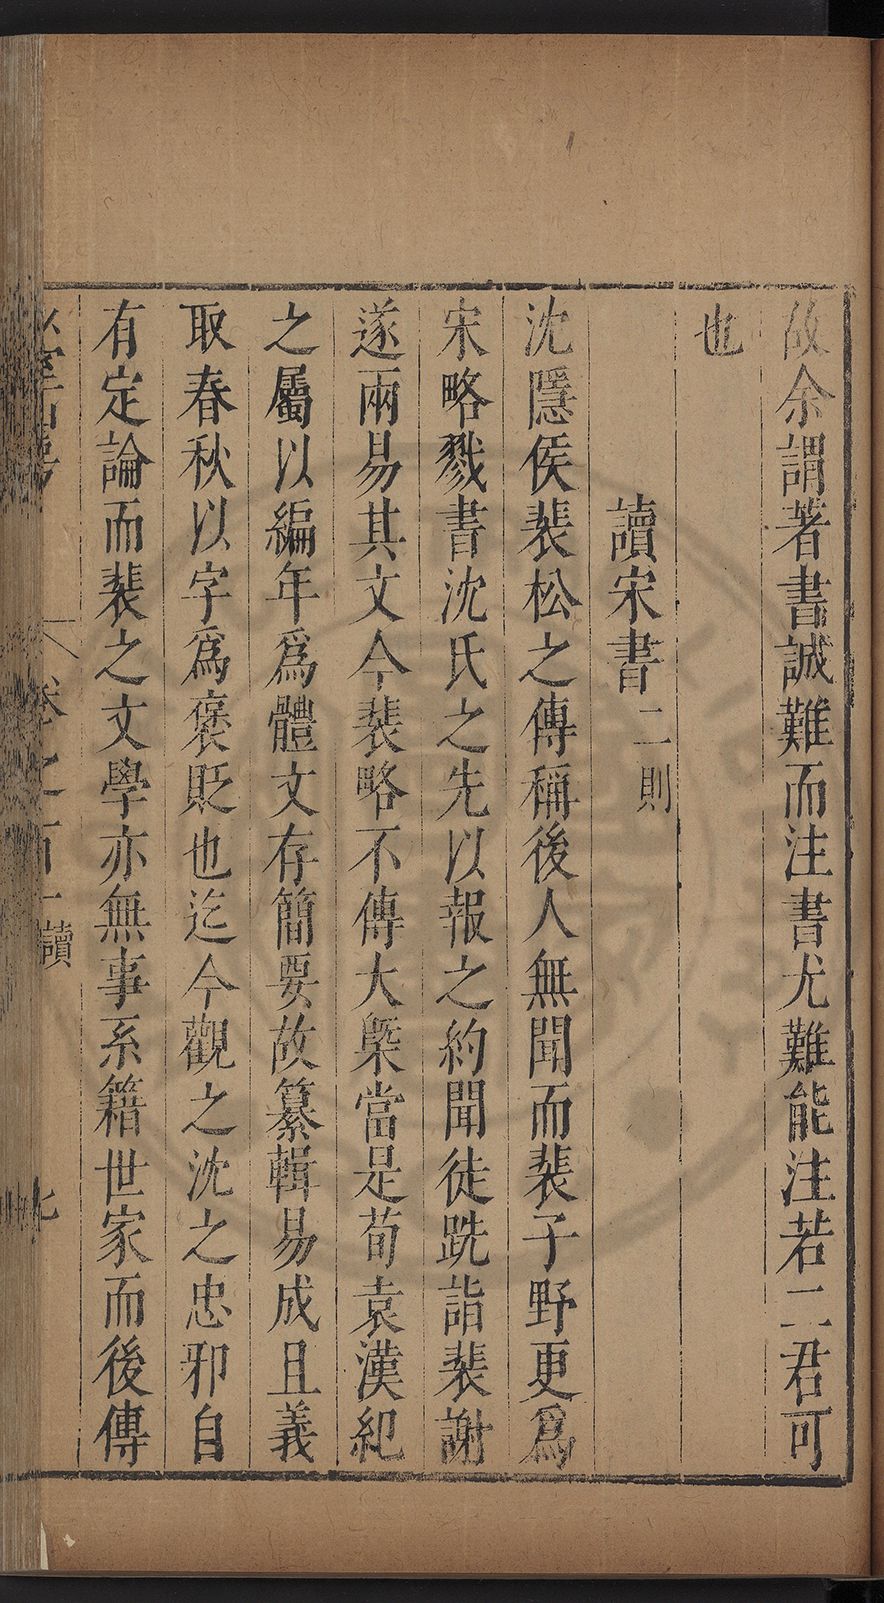 故余謂著書誠難而注書尤難能注若二君可
也
讀宋書二則
沈隱侯裴松之傳稱後人無聞而裴子野更爲
宋略戮書沈氏之先以報之約聞徒跣詣裴謝
遂兩易其文今裴略不傳大槩當是荀袁漢紀
之屬以編年爲體文存簡要故纂輯易成且義
取春秋以字爲褒貶也迄今觀之沈之忠邪自
有定論而裴之文學亦無事系籍世家而後傳
卷之百十讀